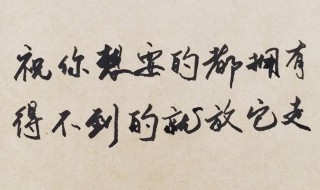 祝你想要的都拥有
得不到的就放它走